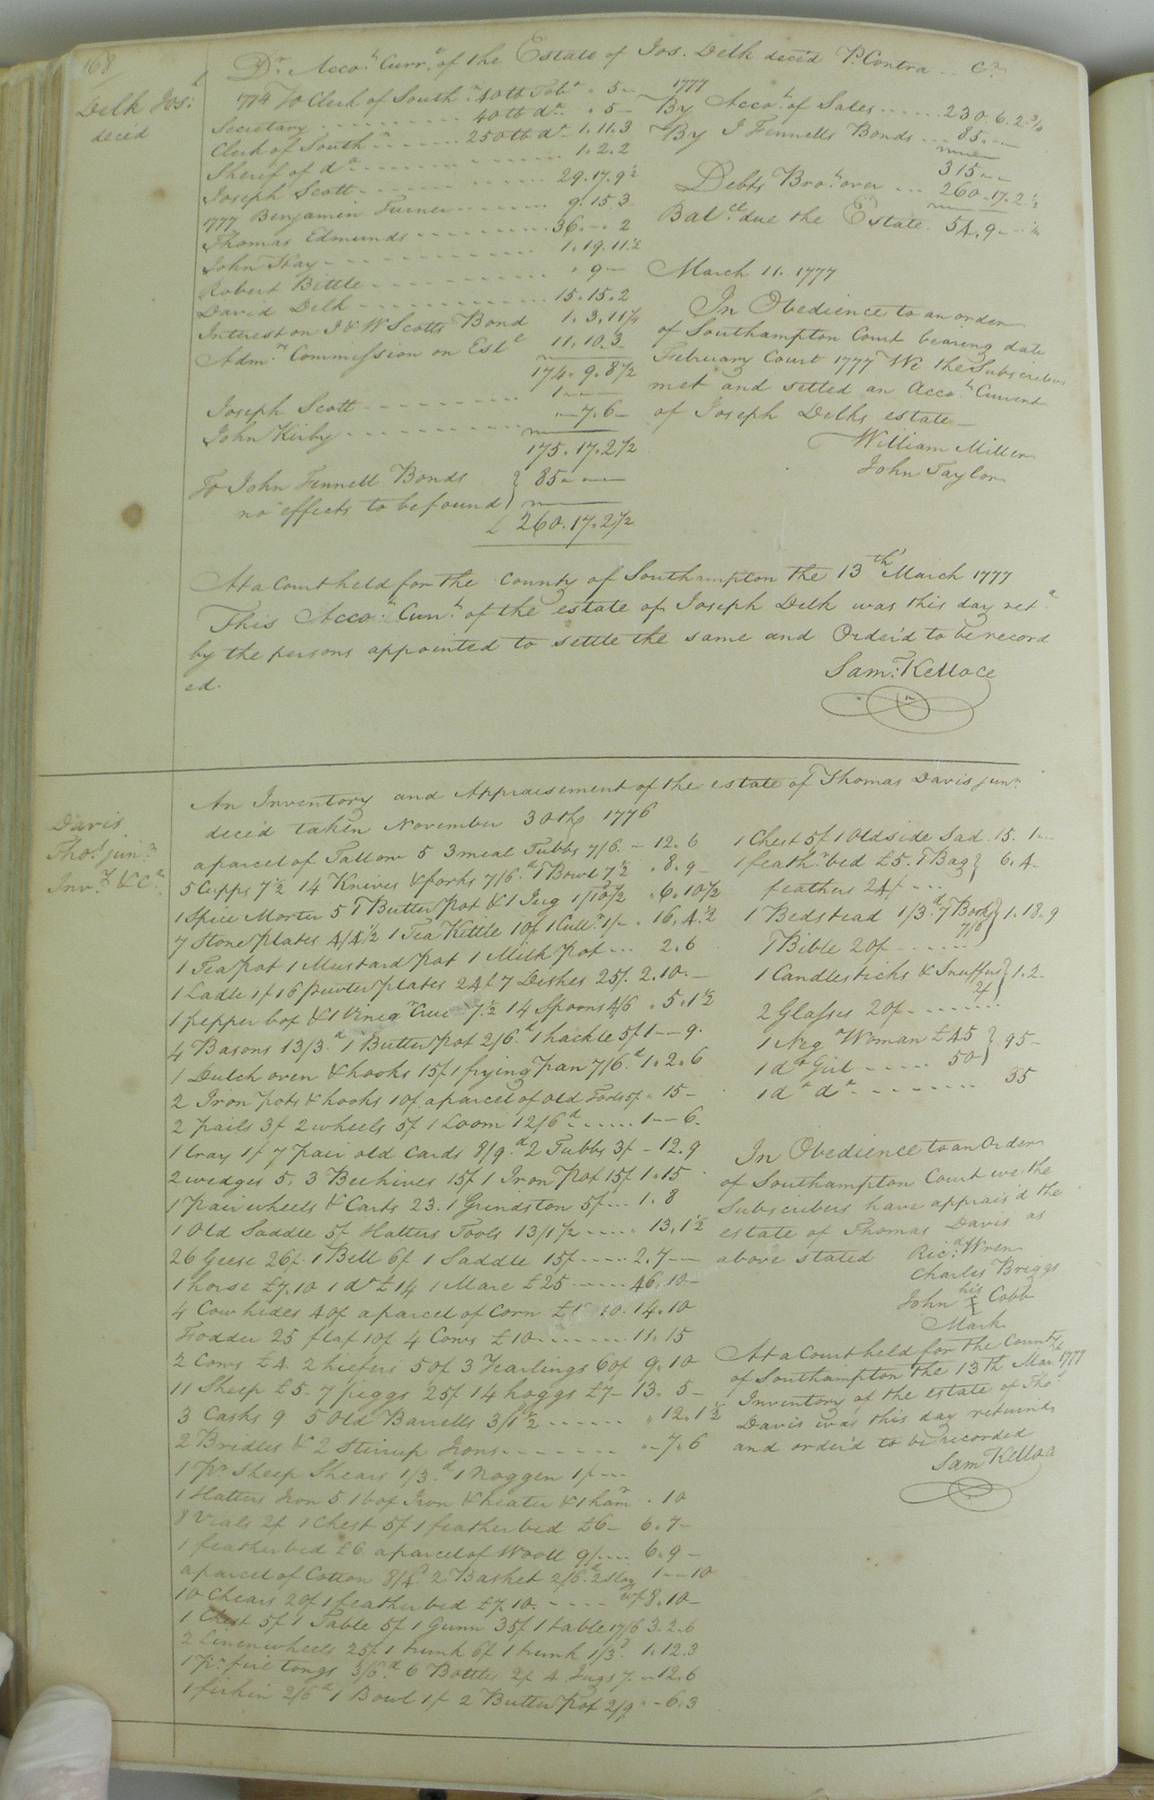 168
Delk Jos:h
deced
Dr. Acco.t Curr.t of the Estate of Jos. Delk deced P. Contra .. Cr.
1774 To Clerk of South.n 40 tb Tob.o " 5 -
Secretary . . . . . 40 tb do. " 5 -
Clerk of South.n . . . . 250 tb do - 1. 11. 3
Sherif of do . . . . . 1. 2. 2
Joseph Scott . . . . . 29. 17. 9 1/2
1777 Benjamin Turner . . . . . 9. 15 3
Thomas Edmunds . . . . . 36. - . 2
John Kay . . . . . 1. 19. 11 1/2
Robert Bittle . . . . . " 9 -
David Delk . . . . . 15. 15. 2
Interest on J & W Scotts Bond 1. 3. 11 1/4
Adm.rs Commission on Est.e 11. 10. 3
174. 9. 8 1/2
Joseph Scott . . . . . 1 - -
John Kirby . . . . . " - 7. 6 -
175. 17. 2 1/2
To John Fennell Bonds } 85 - -
no effects to be found
£ 260. 17. 2 1/2
1777
By Acco.t of Sales . . . . 230. 6. 2 3/4
By J Fennells Bonds . . . 85. - -
315 - -
Debts Bro.t over . . . 260. 17. 2 1/2
Bal.ce due the Estate. 54. 9
March 11. 1777
In Obedience to an order
of Southampton Court bearing date
February Court 1777 We the Subscribers
met and setled an Acco.t Current
of Joseph Delks estate -
William Miller
John Taylor
At a Court held for the County of Southampton the 13th March 1777
This Acco.t Curr.t of the estate of Joseph Delk was this day ret.d
by the persons appointed to settle the same and Order'd to be record
ed.
Sam.l Kelloce
Davis
Tho.s jun.r
Inv.y &C.
An Inventory and Appraisement of the estate of Thomas Davis jun.r
deced taken November 30th 1776
a parcel of Tallow 5 3 meal Tubbs 7/6 - 12. 6
5 Cupps 7 1/2 14 Knives & forks 7/6.d 1 Bowl 7 1/2 " 8. 9 -
1 Spice Morter 5 1 Butter pot & 1 Jug 1/10 1/2 " 6. 10 1/2
7 Stone plates 4/4 1/2 1 Tea Kettle 10f 1 Cull.r 1/- . 16. 4 1/2
1 Tea pot 1 Mustard pot 1 Milk pot ... 2. 6
1 Ladle 1f 16 pewter plates 24f 7 Dishes 25f. 2. 10. -
1 pepper box & 1 Vineg.r Cruet 7 1/2 14 Spoons 4/6 " 5. 1 1/2
4 Basons 13/3.d 1 Butter pot 2/6.d 1 hackle 5f 1 - - 9.
1 Dutch oven & hooks 15f 1 frying pan 7/6.d 1. 2. 6
2 Iron pots & hooks 10f a parcel of old Tools 5f " 15 -
2 pails 3f 2 wheels 5f 1 Loom 12/6.d ..... 1 - - 6.
1 tray 1f 7 pair old Cards 8/9.d 2 Tubbs 3f - 12. 9
2 wedges 5. 3 Beehives 15f 1 Iron Pot 15f 1. 15
1 pair wheels & Carts 23. 1 Grindston 5f ... 1. 8
1 Old Saddle 5f Hatters Tools 13/1 1/2 ..... 13. 1 1/2
26 Geese 26f 1 Bell 6f 1 Saddle 15f ..... 2. 7 -
1 horse £7. 10 1 do £14 1 Mare £25 ..... 46. 10 -
4 Cow hides 40f a parcel of Corn 10. 14. 10
Fodder 25 flax 10f 4 Cows £10 ....... 11. 15
2 Cows £4. 2 hiefers 50f 3 Yearlings 60f 9. 10
11 Sheep £5 - 7 piggs 25f 14 hoggs £7 - 13. 5 -
3 Casks 9 5 Old Barrells 3/1 1/2 ...... " 12. 1 1/2
2 Bridles & 2 Stirrup Irons ........ " - 7. 6
1 pr Sheep Shears 1/3.d 1 Noggen 1f ...
1 Hatters Iron 5 1 box Iron & heater & 1 ham.r . 10
8 Vials 2f 1 Chest 5f 1 feather bed £6 - 6. 7 -
1 feather bed £6 a parcel of Wooll 9/ .... 6. 9 -
a parcel of Cotton 8/4.d 2 Basket 2/6.d 2 Slay 1 - - 10
10 Chears 20f 1 feather bed £7. 10. .... 8. 10 -
1 Chest 5f 1 Table 5f 1 Gunn 35f 1 table 17/6 3. 2. 6
2 Linen wheels 25f 1 trunk 6f 1 trunk 1/3.d 1. 12. 3
1 pr. fire tongs 3/6.d 6 Bottles 2f 4 Jugs 7. - 12. 6
1 firkin 2/6.d 1 Bowl 1f 2 Butter pot 2/9 " - 6. 3
1 Chest 5f 1 Old side Sad. 15. 1 - -
1 feath.r bed £5. 1 Bag } 6. 4 -
feathers 24/ ...
1 Bedstead 1/3.d 7 Books } 1. 18. 9
7/6
1 Bible 20f ......
1 Candlesticks & Snuffers } 1. 2 -
2f
2 Glasses 20f ......
1 Neg.o Woman £45 } 95 -
1 do Girl ..... 50
1 do do ....... 35
In Obedience to an Order
of Southampton Court we the
Subscribers have apprais'd the
estate of Thomas Davis as
above stated Ric.d Wren
Charles Briggs
his
John X Cobb
Mark
At a Court held for the County
of Southampton the 13th Mar. 1777
Inventory of the estate of Tho.s
Davis was this day returned
and order'd to be recorded
Sam Kelloce